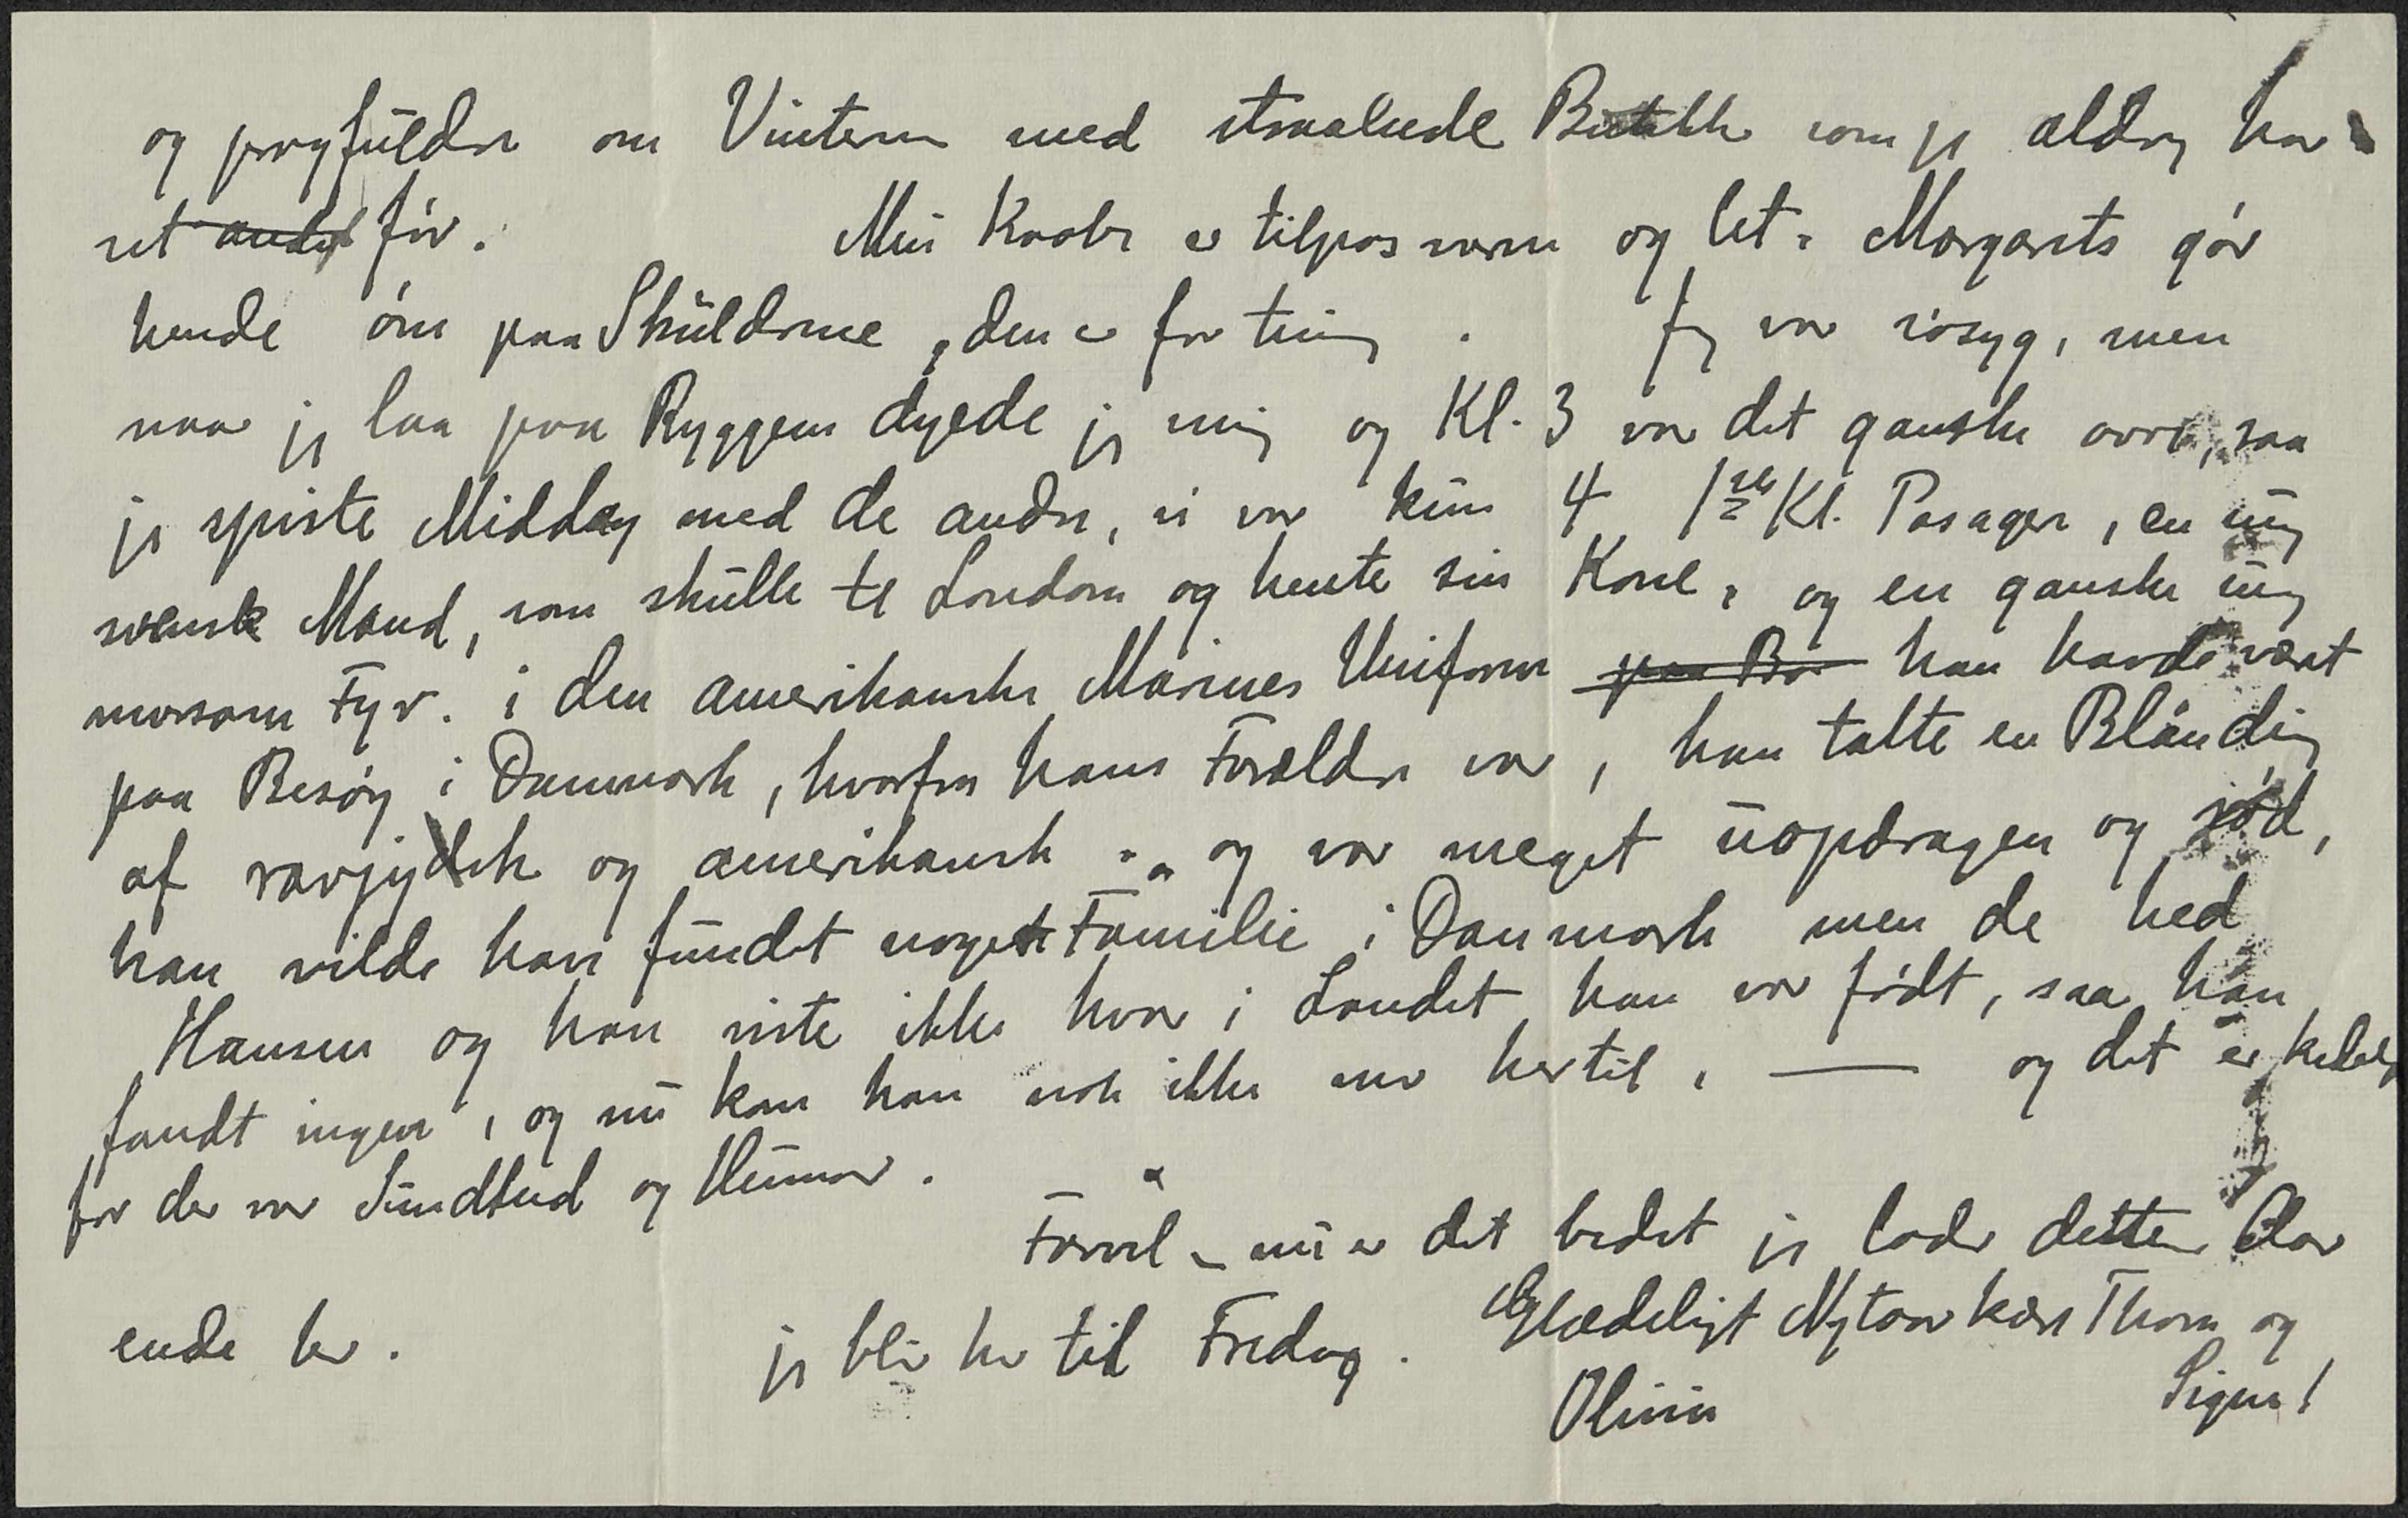 og pragfuldere om Vinteren med straalende Butikker som jeg aldrig har
set andet før. Min Kaabe er tilpas varm og let. Margarets gør
hende øm paa Skuldrene, den er for tung. Jeg var søsyg, men
naar jeg laa paa Ryggen dyede jeg mig og Kl. 3 var det ganske ovre, saa
jeg spiste Middag med de andre, vi var kun 4 1ste Kl. Pasager, en ung
svensk Mand, som skulle til London og hente sin Kone, og en ganske ung
morsom Fyr. i den amerikanske Marines Uniform paa Bø han havde været
paa Besøg i Danmark, hvorfra hans Forældre var, han talte en Blanding
af ravjydsk og amerikansk - og var meget uopdragen og sød,
han vilde have fundet noget Familie i Danmark men de hed
Hansen og han viste ikke hvor i Landet han var født, saa han
fandt ingen, og nu kom han nok ikke mer hertil, — og det er kedelig
for der var Sundhed og Humør.
Farvel - nu er det bedst jeg lader dette
ende her. jeg blir her til Fredag. Glædeligt Nytaar kære Thora og
Olivia Signe!